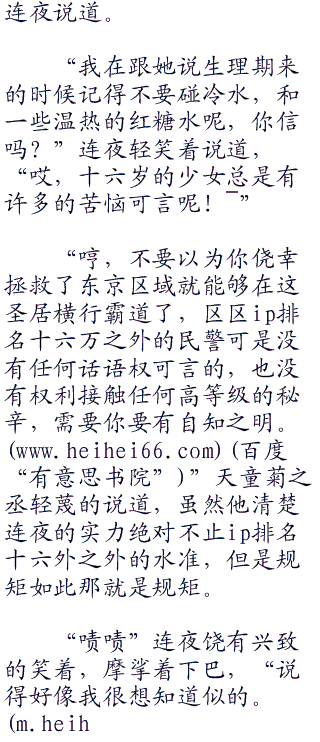 连夜说道。
“我在跟她说生理期来
的时候记得不要碰冷水，和
一些温热的红糖水呢，你信
吗？”连夜轻笑着说道，
“哎，十六岁的少女总是有
许多的苦恼可言呢！”
“哼，不要以为你侥幸
拯救了东京区域就能够在这
圣居横行霸道了，区区ip排
名十六万之外的民警可是没
有任何话语权可言的，也没
有权利接触任何高等级的秘
辛，需要你要有自知之明。
(www.heihei66.com)(百度
“有意思书院”)”天童菊之
丞轻蔑的说道，虽然他清楚
连夜的实力绝对不止ip排名
十六外之外的水准，但是规
矩如此那就是规矩。
“啧啧”连夜饶有兴致
的笑着，摩挲着下巴，“说
得好像我很想知道似的。
(m.heih